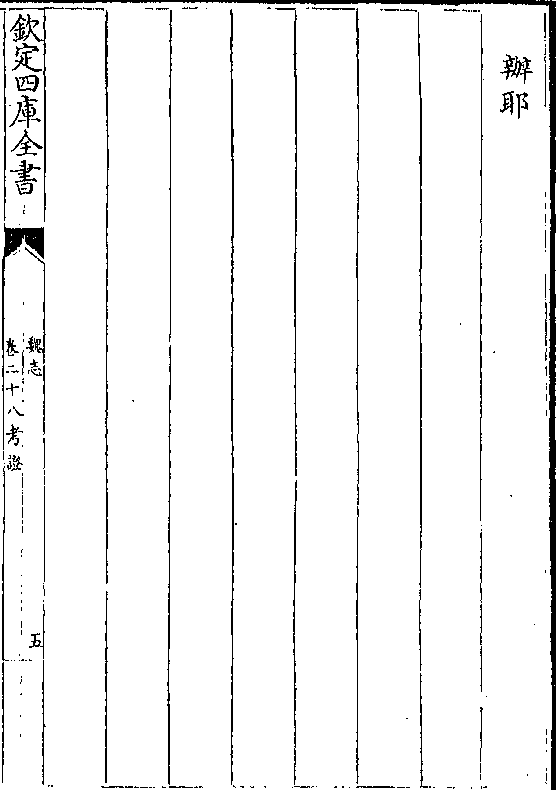 辦耶
欽定四庫全書
魏志
卷二十八考證
五